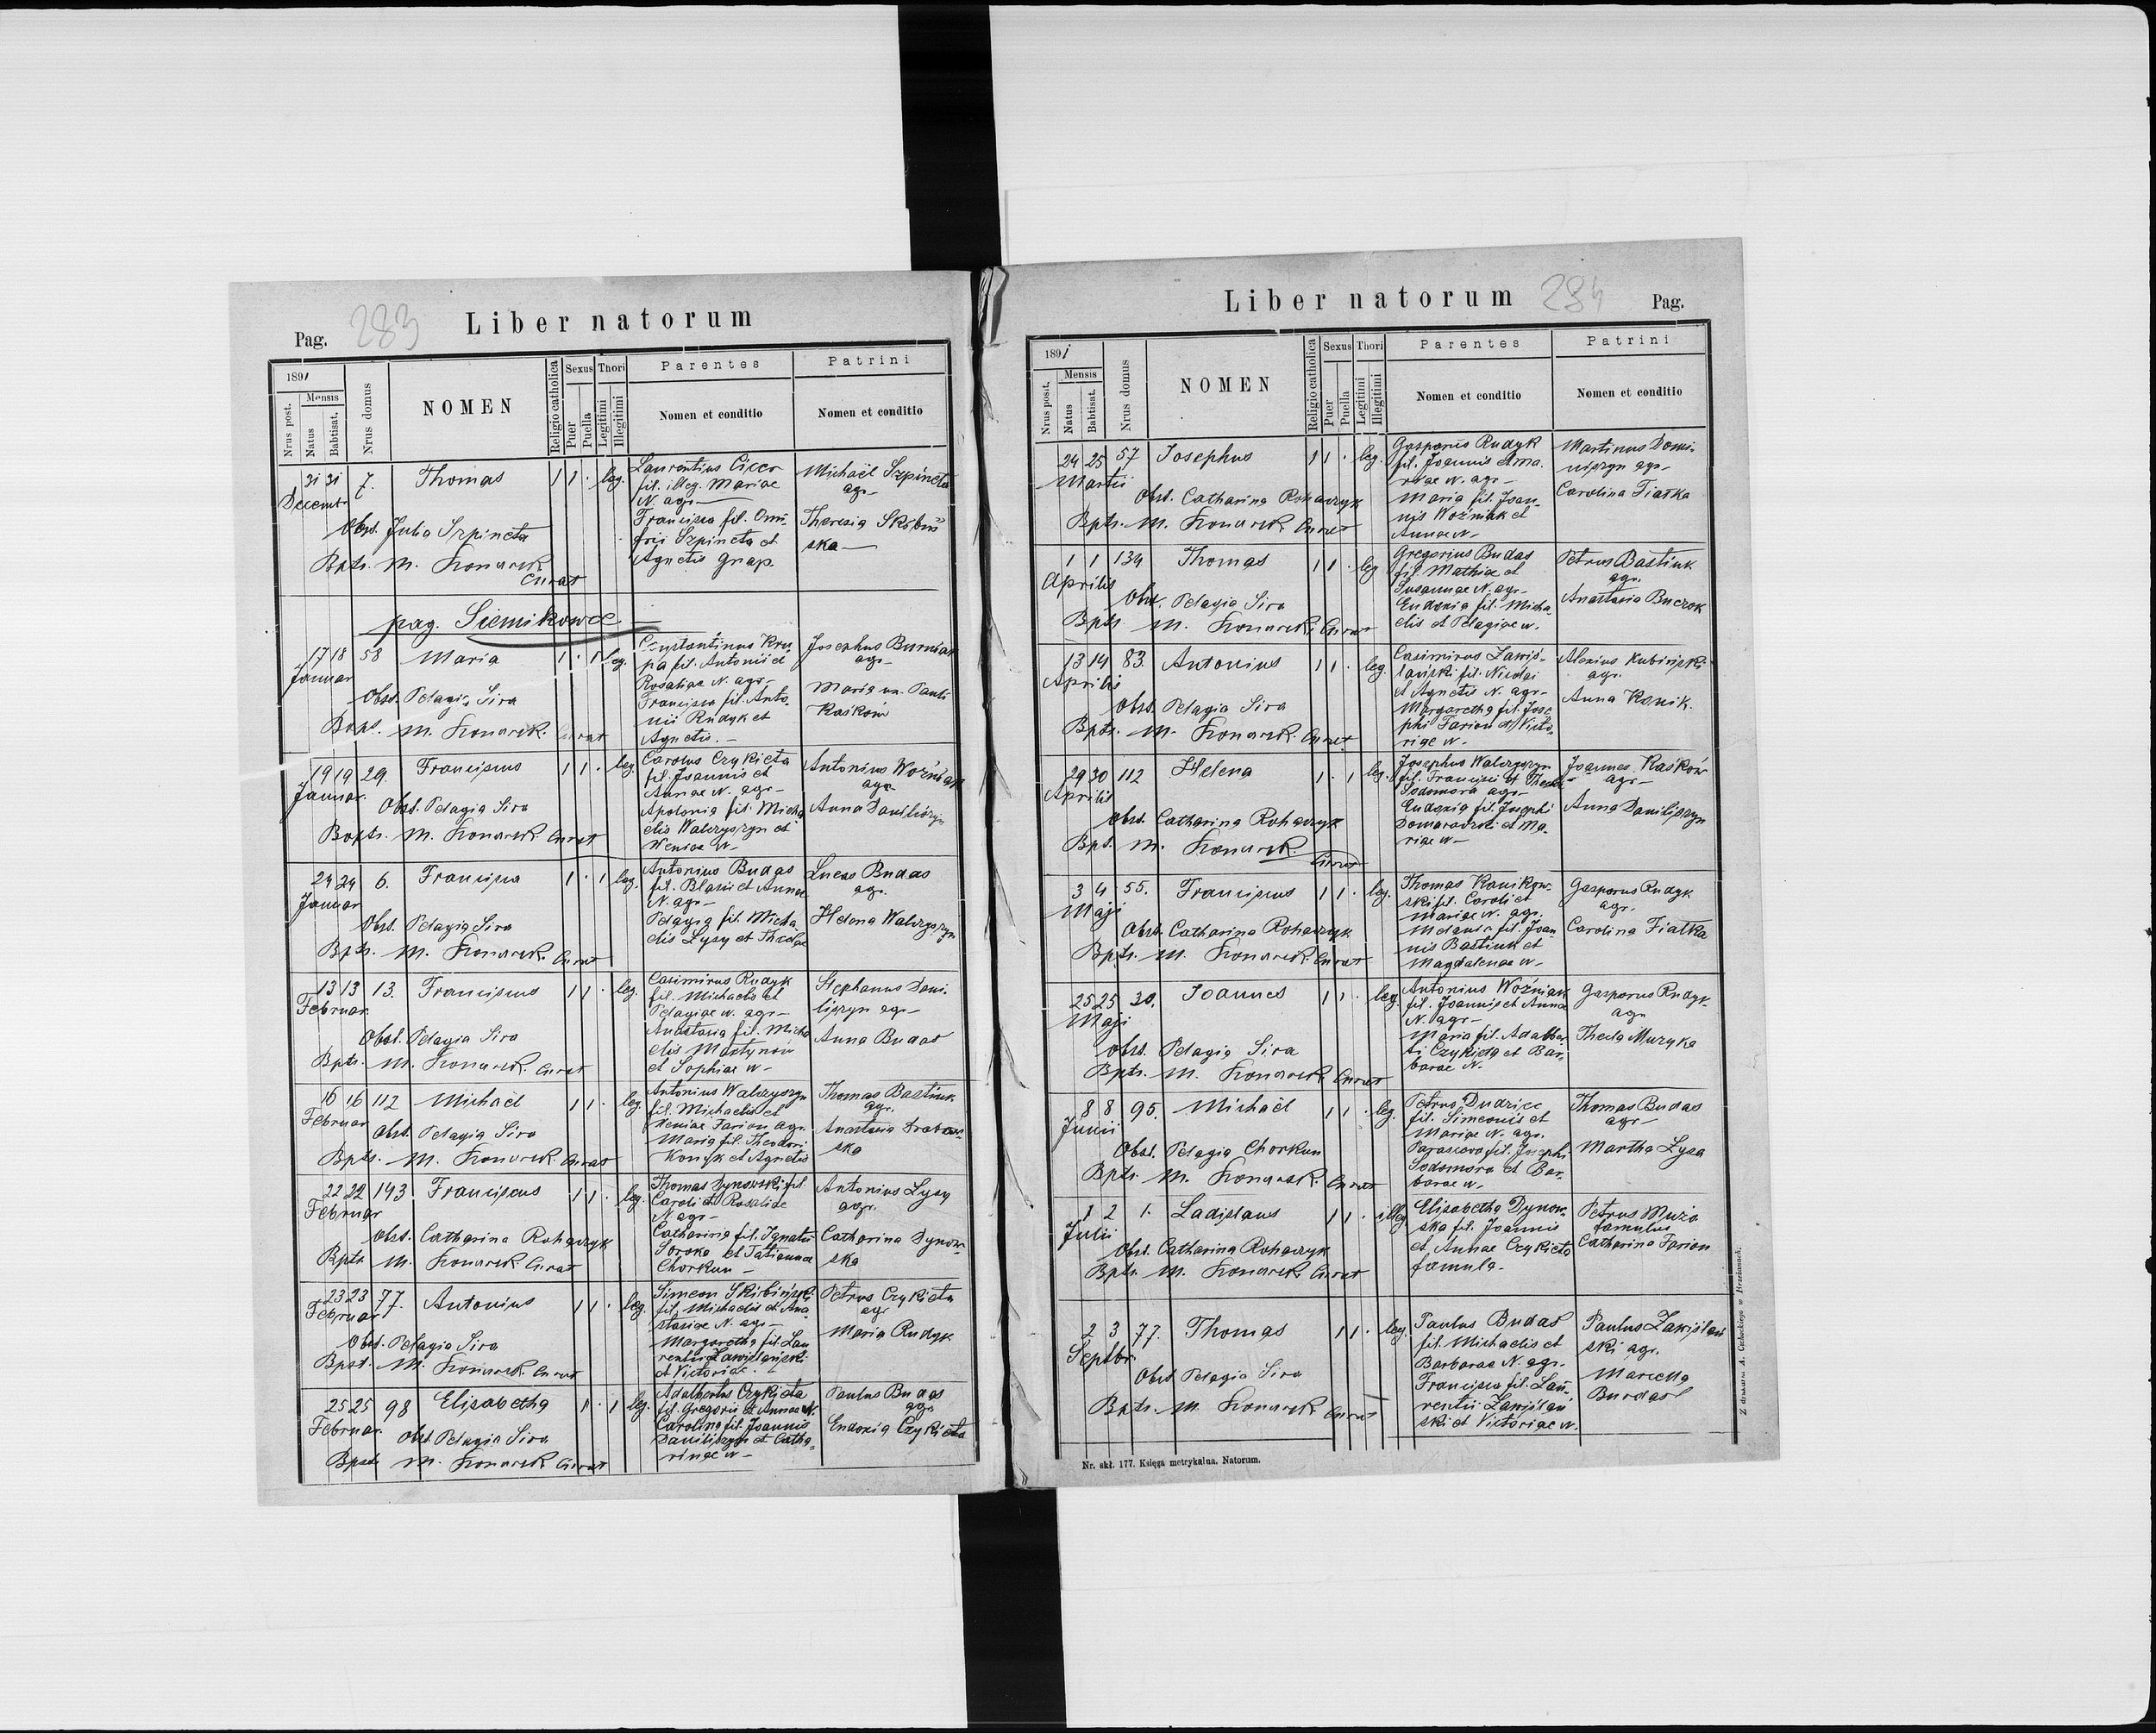 Pag. 283 Liber natorum
1891 Mensis Nrus domus NOMEN Religio catholica Sexus Thori Parentes Patrini
Nrus post. Natus Babtisat. Puer Puella Legitimi Illegitimi Nomen et conditio Nomen et conditio
31 31 7. Thomas 1 1 . leg. Laurentius Cicer Michaël Szpineta
Decembr. fil. illeg. Mariae agr.
N. agr.
Obst. Julia Szpineta Francisca fil. Onu- Theresia Skobiń
frii Szpineta et ska
Bpts. M. Konarek Agnetis Gnap.
Curat
pag. Siemikowce
17 18 58 Maria 1 . 1 leg. Constantinus Kru- Josephus Burniak
Januar pa fil. Antonii et agr.
Rosaliae N. agr.
Obst. Pelagia Sira Francisca fil. Anto- Maria ux. Pauli
nii Rudyk et Raśków
Bapt. M. Konarek. Curat Agnetis.
19 19 29. Franciscus 1 1 . leg. Carolus Czykieta Antonius Woźniak
Januar. fil. Joannis et agr.
Annae N. agr.
Obst. Pelagia Sira Apolonia fil. Micha
elis Walczyszyn et
Bapts. M. Konarek Curat N.
24 24 6. Francisca 1 . 1 leg. Antonius Budas Lucas Budas
Januar fil. Blasii et Annae agr.
N. agr.
Obst. Pelagia Sira Pelagia fil. Micha Helena Walczyszyn
elis Łysy et Theclae
Bpts. M. Konarek. Curat
13 13 13. Franciscus 1 1 . leg. Casimirus Rudyk Stephanus Dani-
Februar fil. Michaelis et liszyn agr.
Pelagiae N. agr.
Obst. Pelagia Sira Anastasia fil. Micha Anna Budas
elis Martynów
Bpts. M. Konarek Curat et Sophiae N.
16 16 112 Michaël 1 1 . leg. Antonius Walczyszyn Thomas Bastiuk
Februar fil. Michaelis et agr.
Obst. Pelagia Sira Xeniae Farion agr. Anastasia
Maria fil. Theodori ska
Bpts. M. Konarek. Curat Konyk et Agnetis
22 22 143 Franciscus 1 1 . leg. Thomas Dynowski fil. Antonius Łysy
Februar Caroli et Rosaliae agr.
N. agr.
Obst. Catharina Rohaczyk Catharina fil. Ignatii Catharina Dynow-
Soroka et Tatiannae ska
Bpts. M. Konarek Curat Chorkun
23 23 77. Antonius 1 1 . leg. Simeon Skibiński Petrus Czykieta
Februar fil. Michaelis et Ana agr
stasiae N. agr.
Obst. Pelagia Sira Margaretha fil. Lau Maria Rudyk
rentii Zawiślański
Bpst. M. Konarek Curat et Victoriae
25 25 98 Elisabetha 1 . 1 leg. Adalbertus Czykieta Paulus Budas
Februar fil. Gregorii et Annae N. agr.
Obst. Pelagia Sira Carolina fil. Joannis Eudoxia Czykieta
Daniliszyn et Catha-
Bpst. M. Konarek Curat rinae N.
Liber natorum 284 Pag.
1891 Mensis Nrus domus NOMEN Religio catholica Sexus Thori Parentes Patrini
Nrus post. Natus Babtisat. Puer Puella Legitimi Illegitimi Nomen et conditio Nomen et conditio
24 25 57 Josephus 1 1 . leg. Gasparus Rudyk Martinus Domi-
Martii fil. Joannis et Ma- agr.
riae N. agr.
Obst. Catharina Rohaczyk Maria fil. Joan- Carolina Fiałka
nis Woźniak et
Bpts. M. Konarek Curat Annae N.
1 1 134 Thomas 1 1 . leg Gregorius Budas Petrus Bastiuk
Aprilis fil. Mathiae et agr.
Susannae N. agr.
Obst. Pelagia Sira Eudoxia fil. Micha Anastasia Buczok
Bpts M. Konarek. Curat elis et Pelagiae N.
13 14 83. Antonius 1 1 . leg. Casimirus Zawiś- Alexius Kubiński
Aprilis lański fil. Nicolai agr.
et Agnetis N. agr.
Obst. Pelagia Sira Margaretha fil. Jose Anna Konik.
phi Farion et Victo-
Bpts. M. Konarek. Curat riae N.
29 30 112 Helena 1 . 1 leg. Josephus Walczyszyn Joannes Raśków
Aprilis fil. Francisci et Theclae agr.
Sodomora agr.
Obst. Catharina Rohaczyk Eudoxia fil. Josephi Anna Daniliszyn
Domaradzki et Ma-
Bpt. M. Konarek. Curat riae N.
3 4 55. Franciscus 1 1 . leg. Thomas Konikow- Gasparus Rudyk
Maji ski fil. Caroli et agr.
Mariae N. agr.
Obst. Catharina Rohaczyk Melania fil. Joan Carolina Fiałka
nis Bastiuk et
Bpts. M. Konarek. Curat Magdalenae N.
25 25 30. Joannes 1 1 . leg. Antonius Woźniak Gasparus Rudyk
Maji fil. Joannis et Annae agr.
N. agr.
Obst. Pelagia Sira Maria fil. Adalber Thecla Muzyka
ti Czykieta et Bar-
Bpts. M. Konarek Curat barae N.
8 8 95. Michaël 1 1 . leg. Petrus Dudzicz Thomas Budas
Junii fil. Simeonis et agr.
Mariae N. agr.
Obst. Pelagia Chorkun Parascevia fil. Josephi Martha Łysa
Sodomora et Bar-
Bpts. M. Konarek. Curat barae N.
1 2 1. Ladislaus 1 1 . illeg. Elisabetha Dynow- Petrus
Julii ska fil. Joannis famulus
Obst. Catharina Rohaczyk et Annae Czykieta Catharina Farion
Bpts. M. Konarek Curat famula.
2 3 77. Thomas 1 1 . leg. Paulus Budas Paulus Zawiślań
Septbr fil. Michaelis et ski agr.
Barbarae N. agr.
Obst Pelagia Sira Francisca fil. Lau- Marcella
rentii Zawiślań Burdas
Bpts. M. Konarek Curat ski et Victoriae N.
Nr. skł. 177. Księga metrykalna. Natorum.
Z drukarni A. Cichockiego w Brzeżanach.